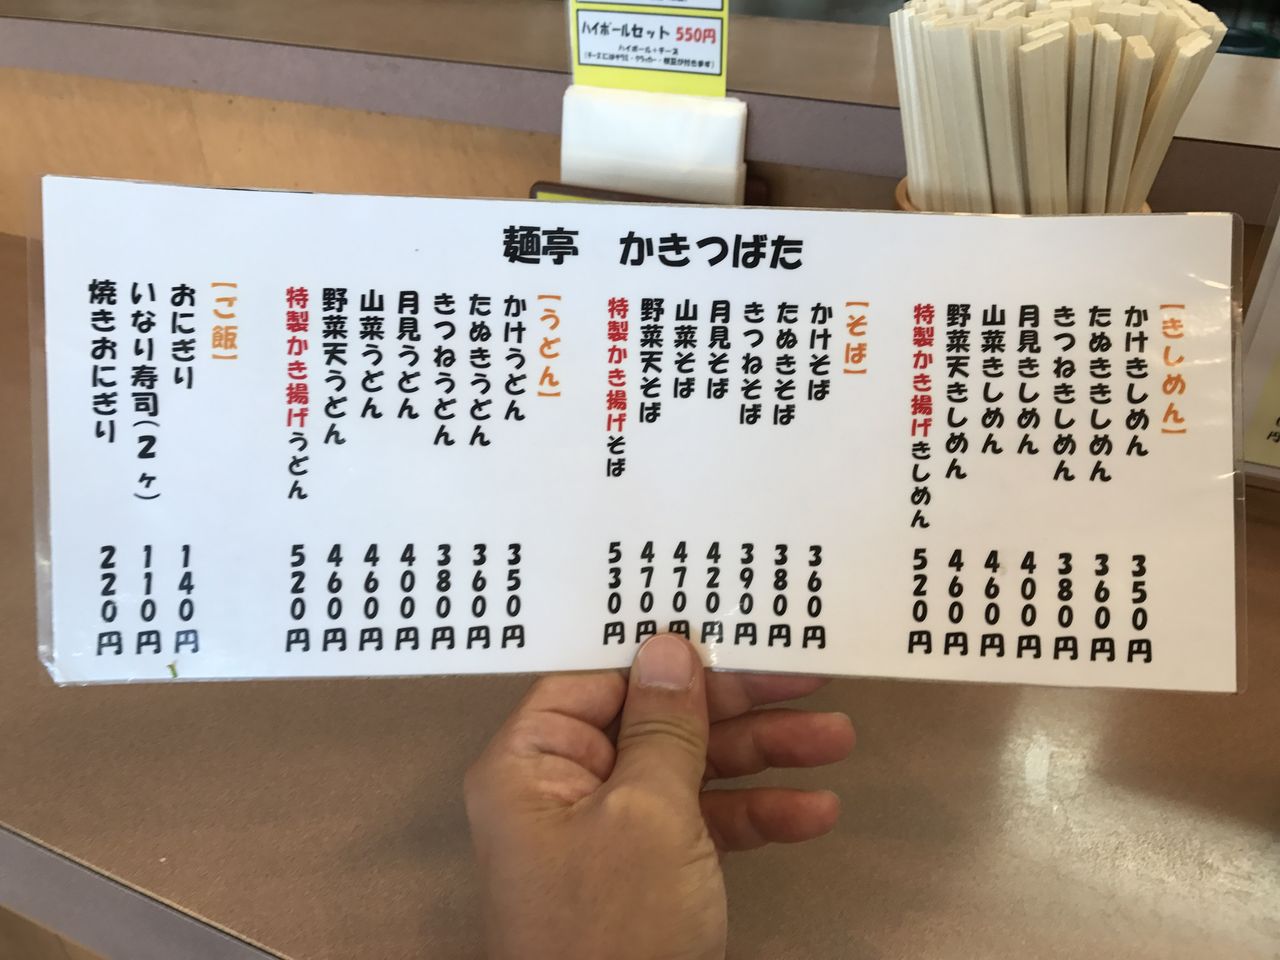 ハイボールセット 550円
ハイボール+チーズ
麺亭 かきつばた
【きしめん】
かけきしめん 350円
たぬききしめん 360円
きつねきしめん 380円
月見きしめん 400円
山菜きしめん 460円
野菜天きしめん 460円
特製かき揚げきしめん 520円
【そば】
かけそば 360円
たぬきそば 380円
きつねそば 390円
月見そば 420円
山菜そば 470円
野菜天そば 470円
特製かき揚げそば 530円
【うどん】
かけうどん 350円
たぬきうどん 360円
きつねうどん 380円
月見うどん 400円
山菜うどん 460円
野菜天うどん 460円
特製かき揚げうどん 520円
【ご飯】
おにぎり 140円
いなり寿司(2ヶ) 110円
焼きおにぎり 220円